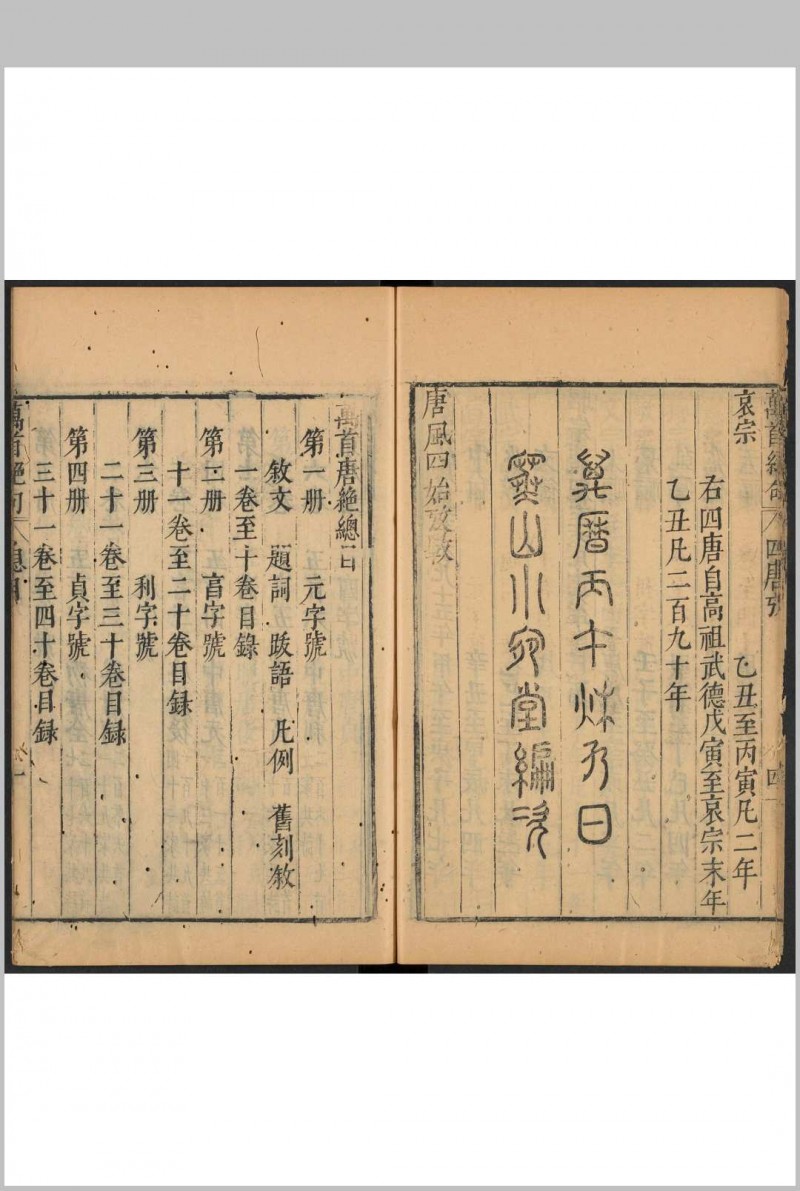 萬首絕句 四唐攷 四
哀宗 乙丑至丙寅凡二年
右四唐自高祖武德戊寅至哀宗末年
乙丑凡二百九十年
萬曆丙午秌九日
寒山小宛堂編次
唐風四始攷
萬首唐絕總目
第一册 元字號
敘文 題詞 跋語 凡例 舊刻敘
一卷至十卷目錄
第二册 亨字號
十一卷至二十卷目錄
第三册 利字號
二十一卷至三十卷目錄
第四册 貞字號
三十一卷至四十卷目錄
萬首絕句 總目